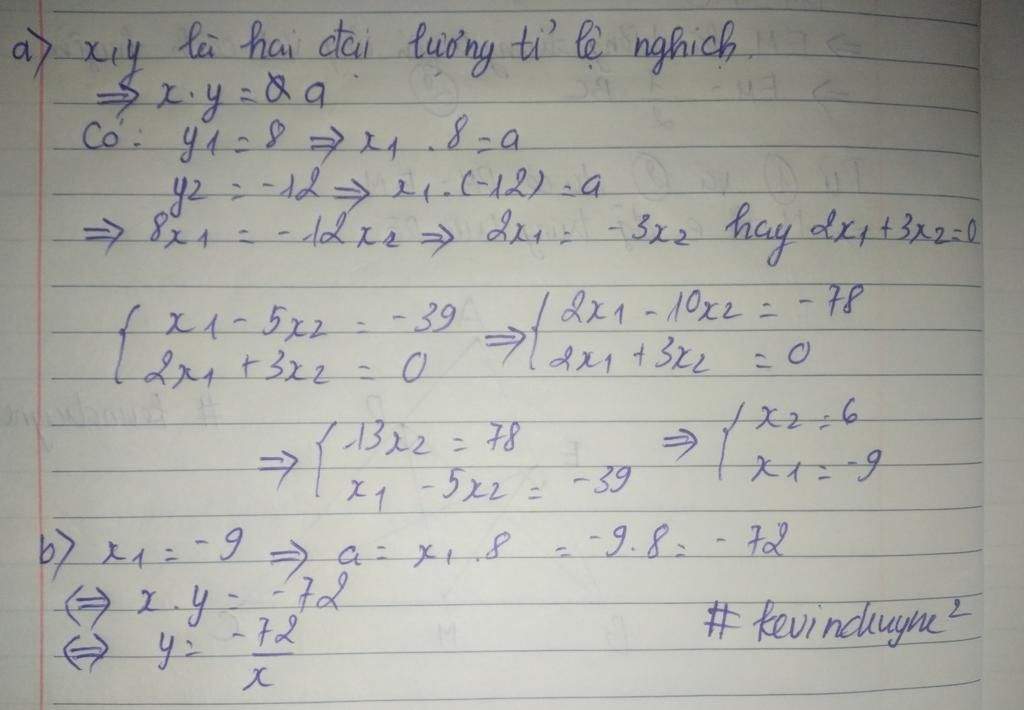 a) x,y là hai đại lượng tỉ lệ nghịch.
⇒ x.y = a
Có: y1 = 8 ⇒ x1 . 8 = a
y2 = -12 ⇒ x1.(-12) = a
⇒ 8x1 = -12x2 ⇒ 2x1 = -3x2 hay 2x1+3x2=0
{ x1 - 5x2 = -39 ⇒ { 2x1 - 10x2 = -78
2x1 + 3x2 = 0 2x1 + 3x2 = 0
⇒ { 13x2 = 78 ⇒ { x2 = 6
x1 - 5x2 = -39 x1 = -9
b) x1 = -9 ⇒ a = x1.8 = -9.8 = -72
⇔ x.y = -72
⇔ y = -72/x
# kevinduyne²